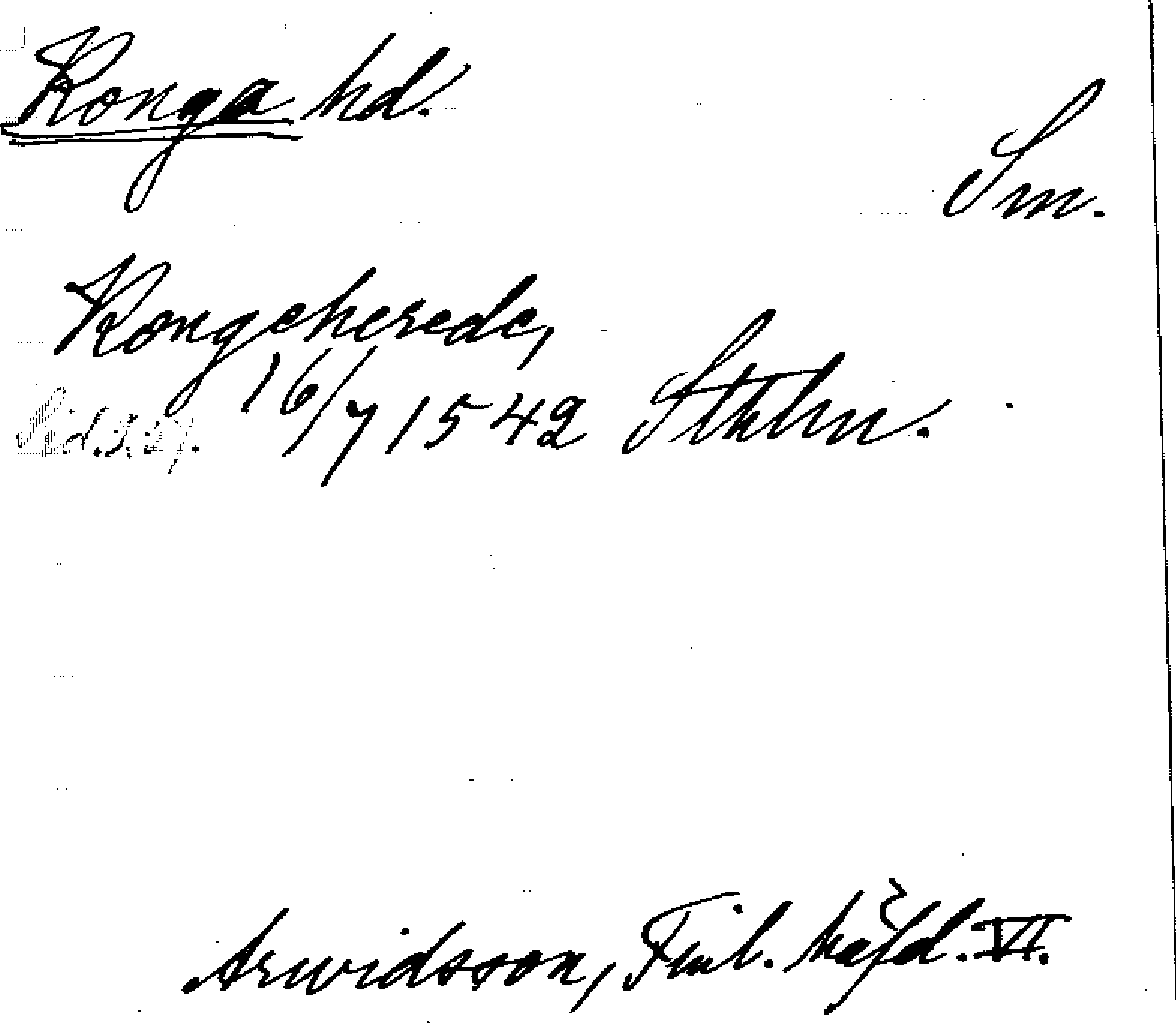 Konga hd.
Sm.
Kongeherede,
16/7 1542 Sthlm.
Arwidsson, Finl. häfd. VI.